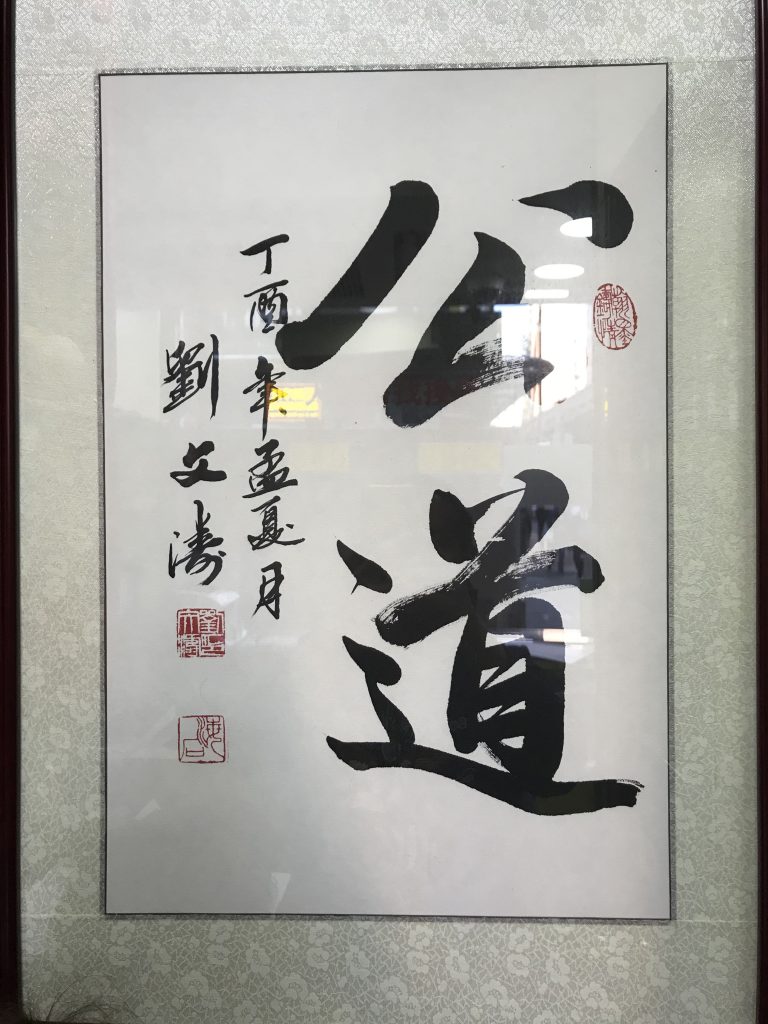 公道
丁酉年孟夏月
劉文濤